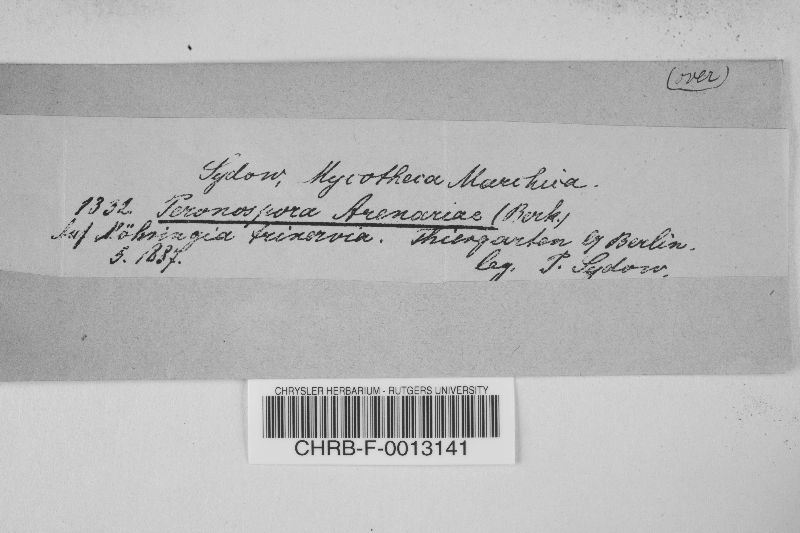 (over)
Sydow, Mycotheca Marchica.
1332. Peronospora Arenariae (Berk)
Auf Möhringia trinervia. Thiergarten b/ Berlin.
5. 1887. leg. P. Sydow.
CHRYSLER HERBARIUM - RUTGERS UNIVERSITY
CHRB-F-0013141